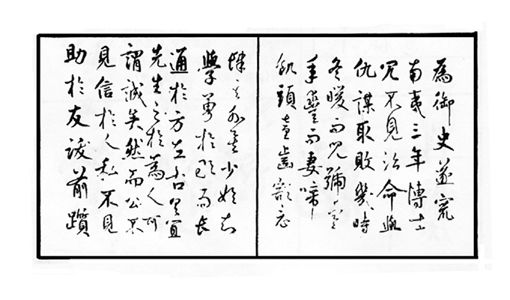 為御史遂竄
南夷三年博士
冗不見治命與
仇謀取敗幾時
冬暖而兒號寒
年豐而妻啼
飢頭童齒豁
肆其外矣少始知
學勇於敢而長
通於方左右具宜
先生之於為人可
謂誠矣然而公不
見信於人私不見
助於友跋前躓